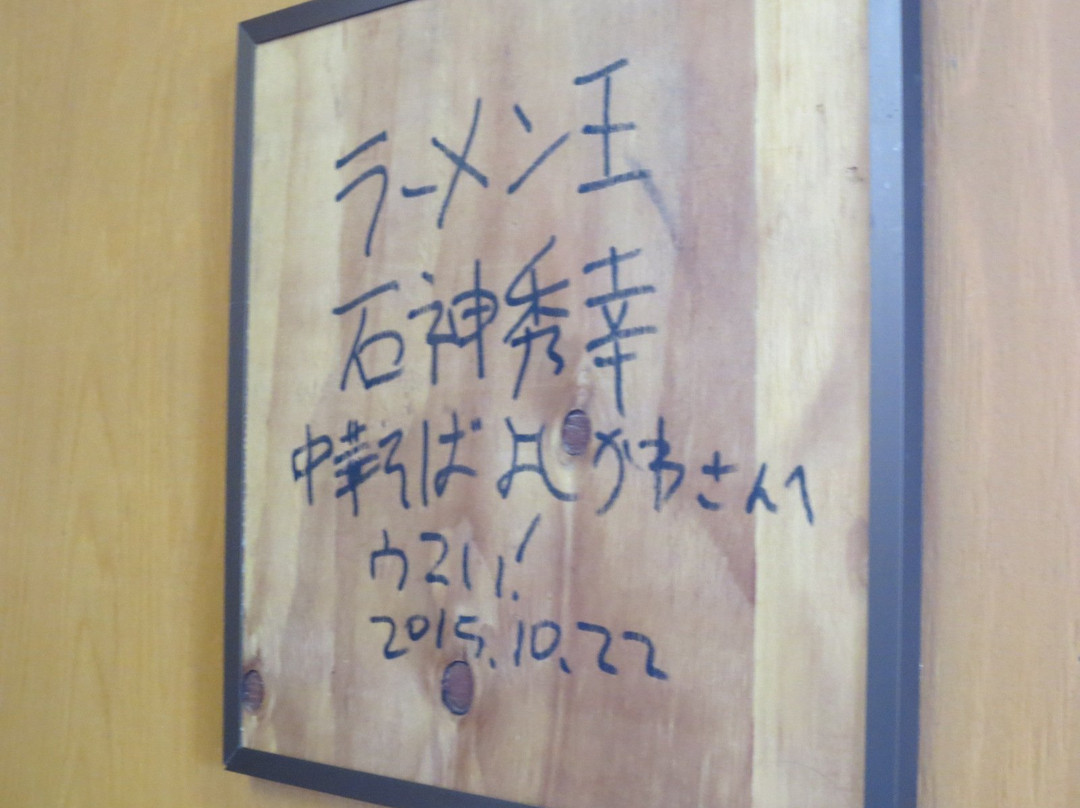 ラーメン王
石神秀幸
中華そば かわさんへ
ウマい!
2015.10.22